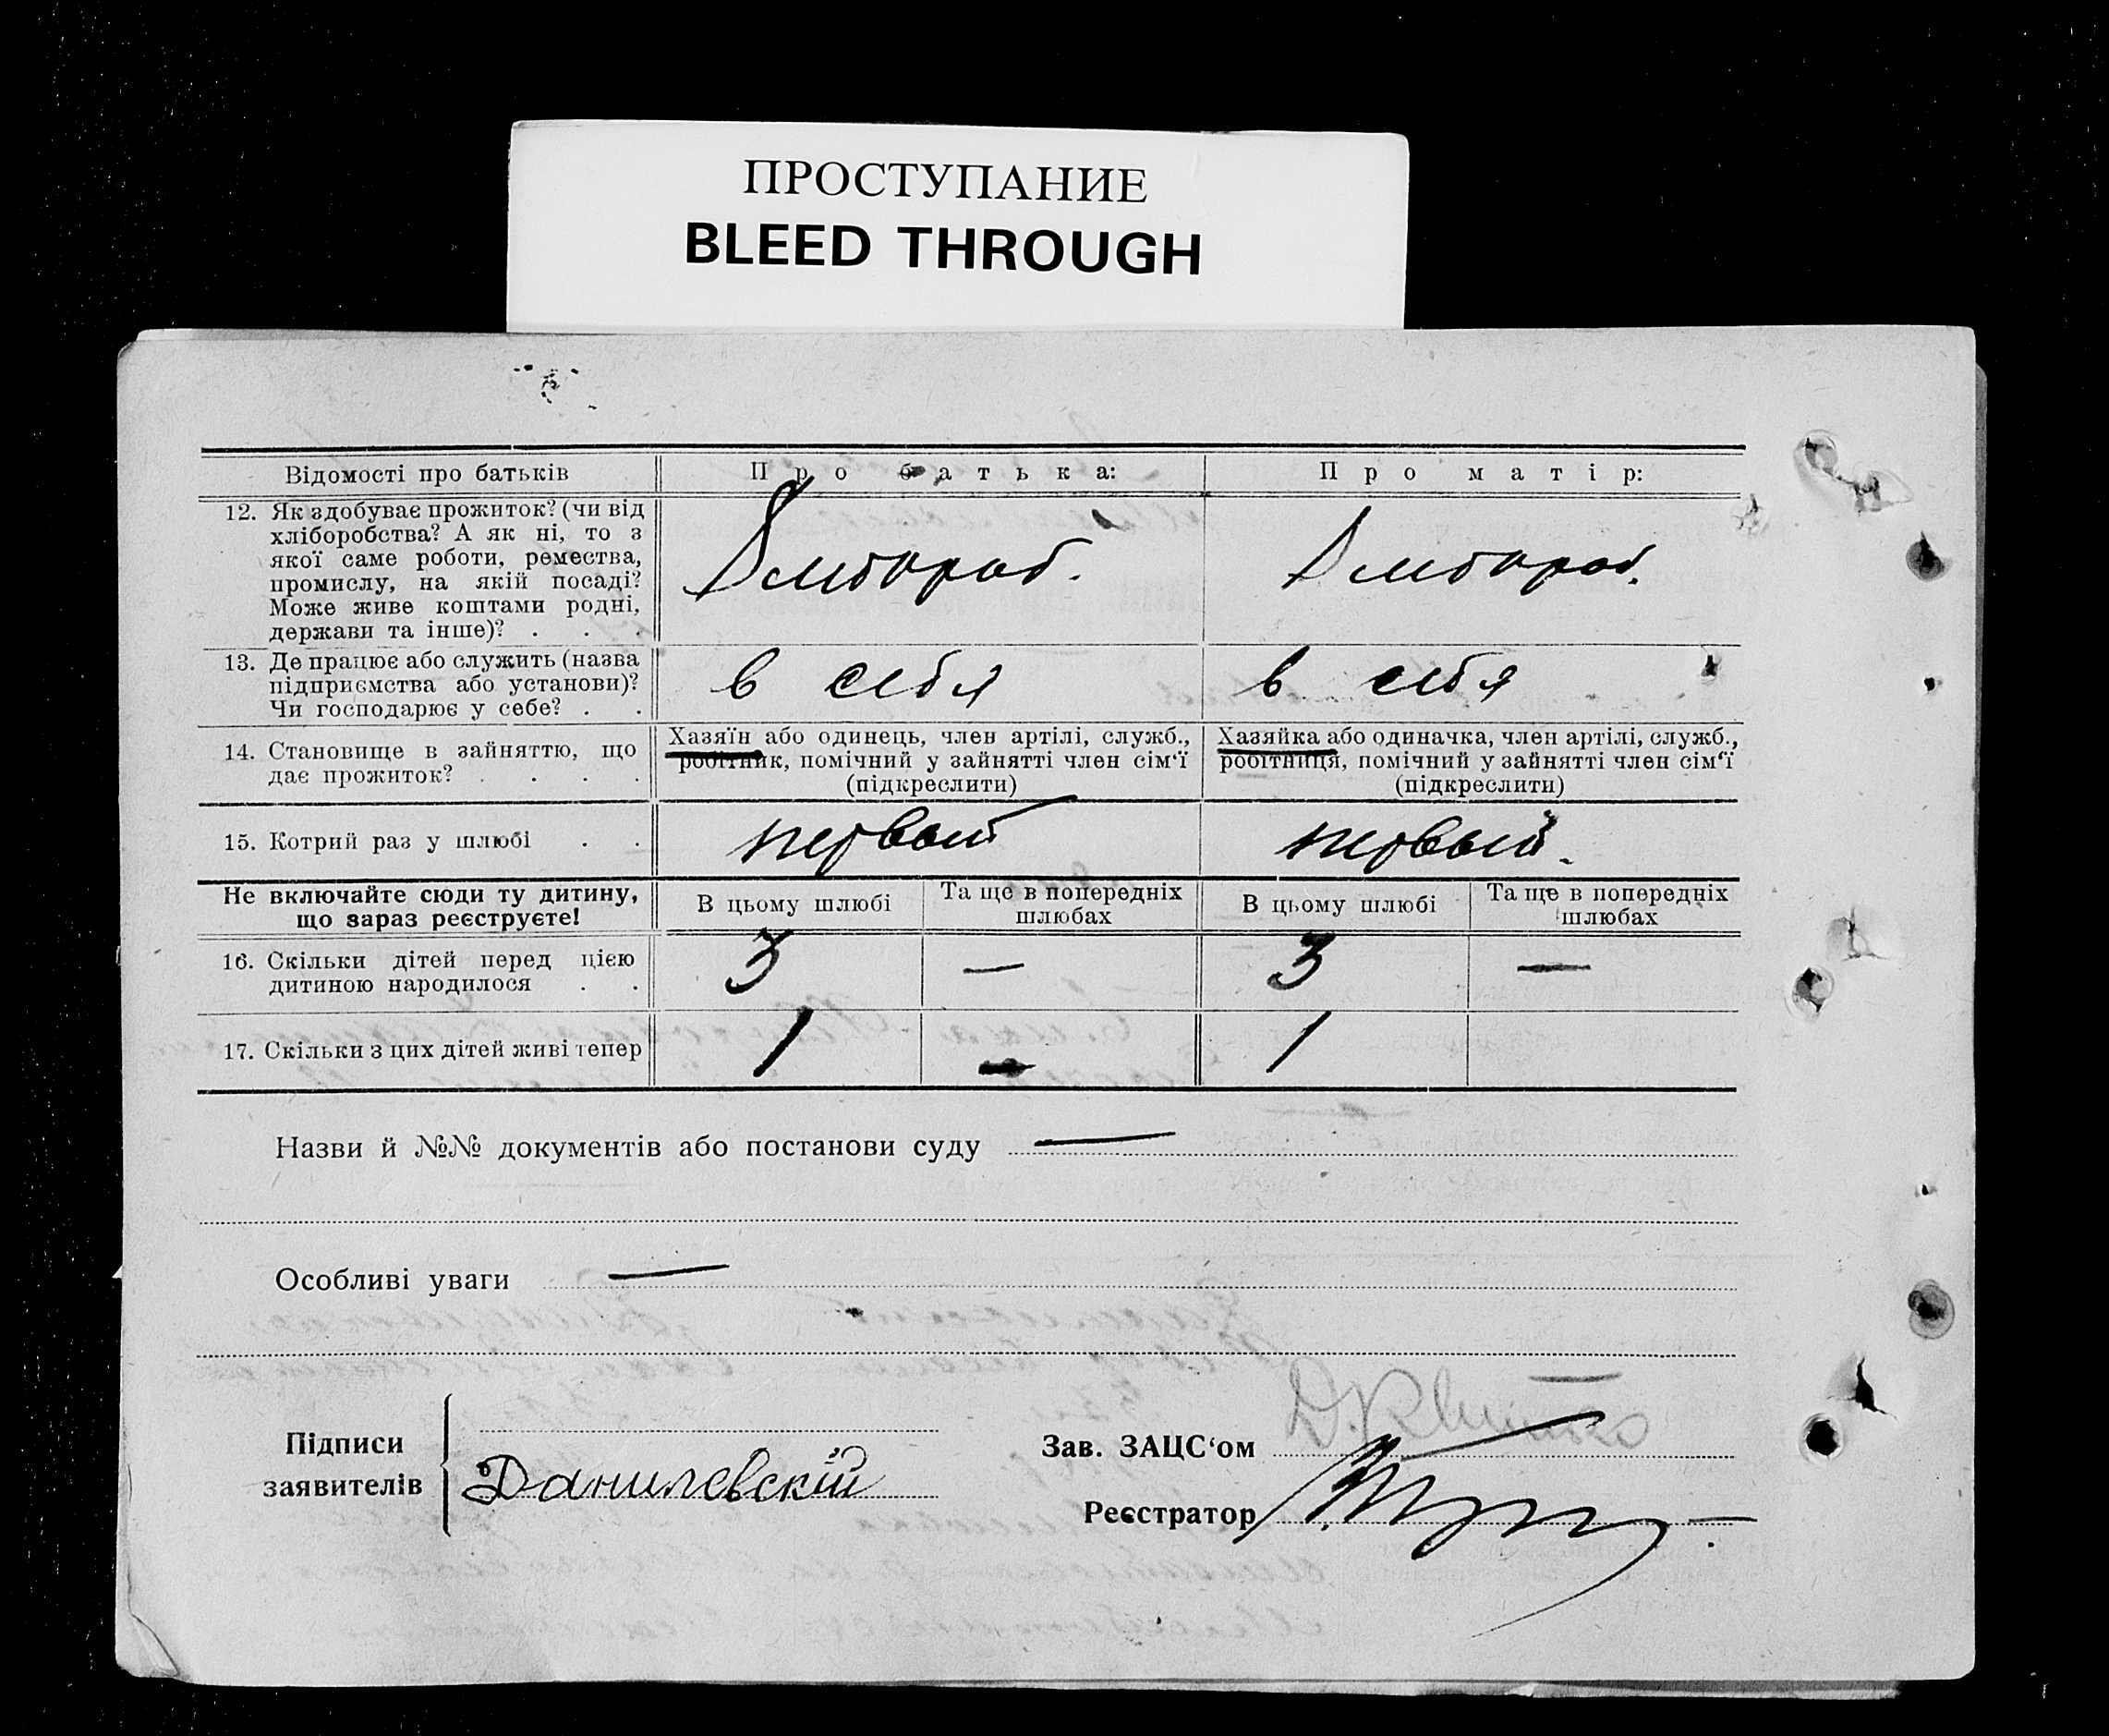 ПРОСТУПАНИЕ
BLEED THROUGH
Відомості про батьків
Про батька:
Про матір:
12. Як здобуває прожиток? (чи від
хліборобства? А як ні, то з
якої саме роботи, ремества,
промислу, на якій посаді?
Може живе коштами родні,
держави та інше)? . . .
13. Де працює або служить (назва
підприємства або установи)?
Чи господарює у себе? . .
в себя
в себя
14. Становище в зайняттю, що
дає прожиток? . . . .
Хазяїн або одинець, член артілі, служб.,
робітник, помічний у зайнятті член сім‘ї
(підкреслити)
Хазяйка або одиначка, член артілі, служб.,
робітниця, помічний у зайнятті член сім‘ї
(підкреслити)
15. Котрий раз у шлюбі . .
первый
первый.
Не включайте сюди ту дитину,
що зараз реєструєте!
В цьому шлюбі
Та ще в попередніх
шлюбах
В цьому шлюбі
Та ще в попередніх
шлюбах
16. Скільки дітей перед цією
дитиною народилося . .
3
—
3
—
17. Скільки з цих дітей живі тепер
1
—
1
Назви й №№ документів або постанови суду —
Особливі уваги —
Підписи
заявителів
Данилевскій
Зав. ЗАЦС‘ом
Реєстратор